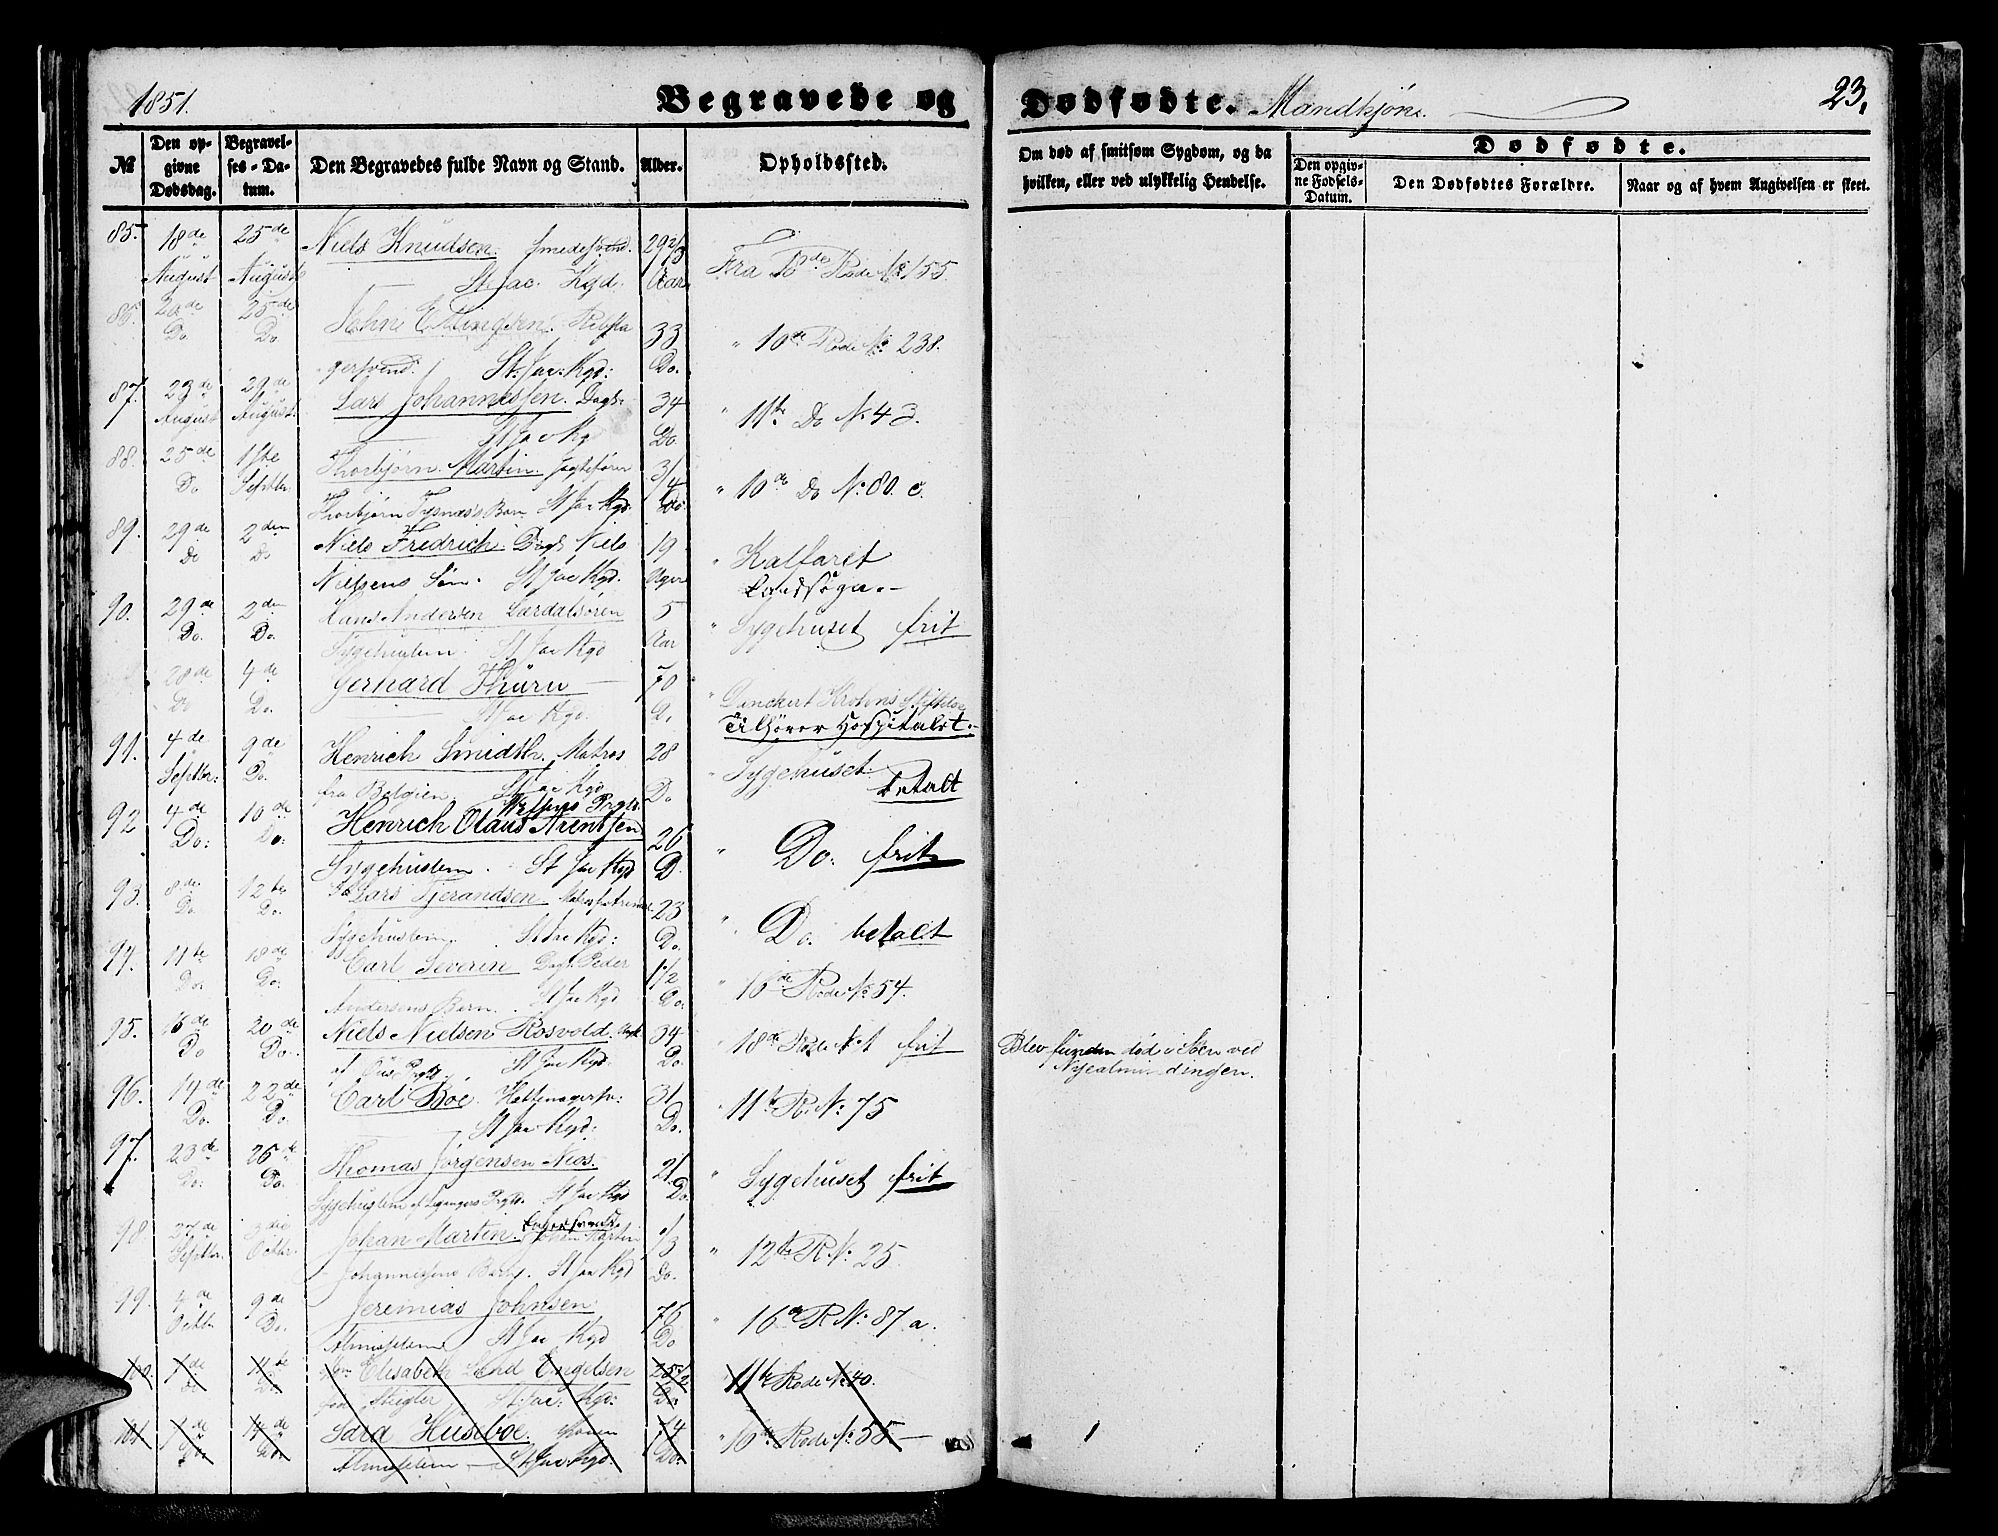 1851.
Begravede og Dødfødte. Mandkjøn.
23.
№
Den opgivne Dødsdag.
Begravelses-Datum.
Den Begravedes fulde Navn og Stand.
Alder.
Opholdssted.
Om død af smitsom Sygdom, og da hvilken, eller ved ulykkelig Hendelse.
Dødfødte.
Den opgivne Fødsels-Datum.
Den Dødfødtes Forældre.
Naar og af hvem Angivelsen er skeet.
85. 18de 25de Niels Knudsen. Smedesvend. 29 2/3 Fra 18de Rode № 155
August August St Jac. Kgd. Aar
20de 25de Ellingsen. Rebsla 33 " 10de Rode № 238.
Do. Do. gersvend. St: Jac: Kgd: Do.
87. 23de 29de Lars Johannessen. Dagk: 34 " 11te Do № 43.
August August. St Jac Kg Do
88. 25de 1ste Thorbjørn Martin. Jagtefører 3/4 " 10de Do № 80. c.
Do Septbr. Thorbjørn Tysnæs's Barn St Jac Kgd. Do.
89. 29de 2den Niels Fredrich. Dagk Niels 19 " Kalfaret
Do Do Nielsens Søn. St Jac Kgd. Uger Landsogn.-
90. 29de 2den Hans Andersen Lærdalsøren 5 " Sygehuset frit
Do. Do. Sygehuslem. St Jac Kgd Aar
28de 4de Gernard Thürn 70 " Danckert Krohns Stiftelse
Do Do. St Jac Kgd. Do Tilhører Hospitalet.-
91. 4de 9de Henrich Smidth. Matros 28 " Sygehuset.
Septbr: Do. fra Belgien. St Jac Kgd Do betalt
92 4de 10de Henrich Olaus Arentsen 26 " Do. frit
Do: Do: Sygehuslem. St Jac Kgd D.
93. 8de 12te Lars Tjerandsen 23 " Do. betalt
Do Do. Sygehuslem. St Jac Kgd: Do.
94. 11te 18de Carl Severin Dagk. Peder 1 1/2 16de Rode № 54.
Do: Do: Andersens Barn. St Jac Kgd Do:
95. 16de 20de Niels Nielsen Rosvold. 34 " 18de Rode № 1 frit Blev funden død i Søen ved
Do Do. St Jac Kgd. Do. Nyealmindingen.
96. 14de 22de Carl Bøe. Hattemagersv: 31 " 11te R. № 75
Do. Do: St Jac Kgd: Do.
97. 23de 26de Thomas Jørgensen Næs. 21 " Sygehuset frit
Do: Do. Sygehuslem af Leganger Prgld. St Jac Kgd Do.
98. 27de 3die Johan Martin. 1/3 " 12te R. № 25
Septbr. Octbr: Johannesens Barn. St Jac Kgd Do.
99. 4de 9de Jeremias Johnsen 76 " 16de R № 87 a.
Octbr Do. Almisselem. St Jac Kgd Do
100. 1de 11te Elisabeth Engelsen 11te Rode № 40.
Do Do født Steigler St: Jac: Kgd: Do
101 1de 14de Sara Huseboe. 74 " 10de Rode № 55
Do. Do. Almisselem St Jac Kgd. Do.